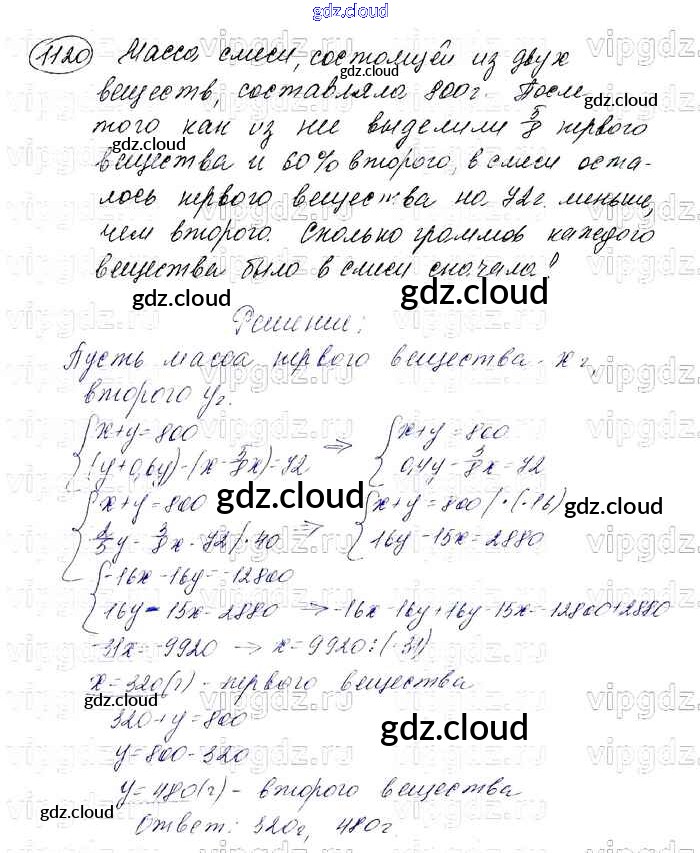 gdz.cloud
1120 Масса смеси, состоящей из двух
веществ, составляла 800г. После
того как из нее выделили 5/8 первого
вещества и 60% второго, в смеси оста-
лось первого вещества на 72г. меньше,
чем второго. Сколько граммов каждого
вещества было в смеси сначала?
Решение:
Пусть масса первого вещества - x г,
второго y г.
{x+y=800 => {x+y=800
{(y+0,6y)-(x-5/8x)=72 {0,4y-3/8x=72
{x+y=800 => {x+y=800/·(-16)
{2/5y-3/8x=72/·40 {16y-15x=2880
{-16x-16y=-12800
{16y-15x=2880 -> -16x-16y+16y-15x=-12800+2880
-31x=-9920 -> x=9920:(-31)
x=320(г) - первого вещества
320+y=800
y=800-320
y=480(г) - второго вещества
Ответ: 320г, 480г.
gdz.cloud